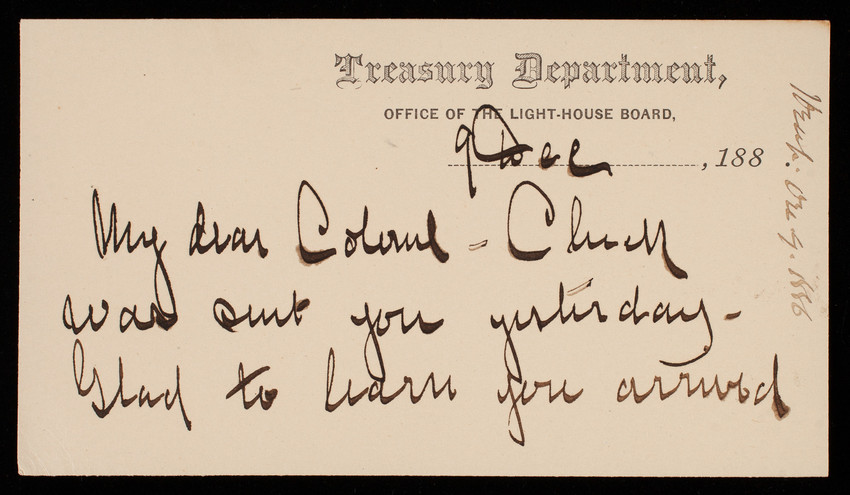 Treasury Department,
OFFICE OF THE LIGHT-HOUSE BOARD,
9 Dec , 188
My dear Colonel - Check
was sent you yesterday -
Glad to learn you arrived
Dec 9. 1886